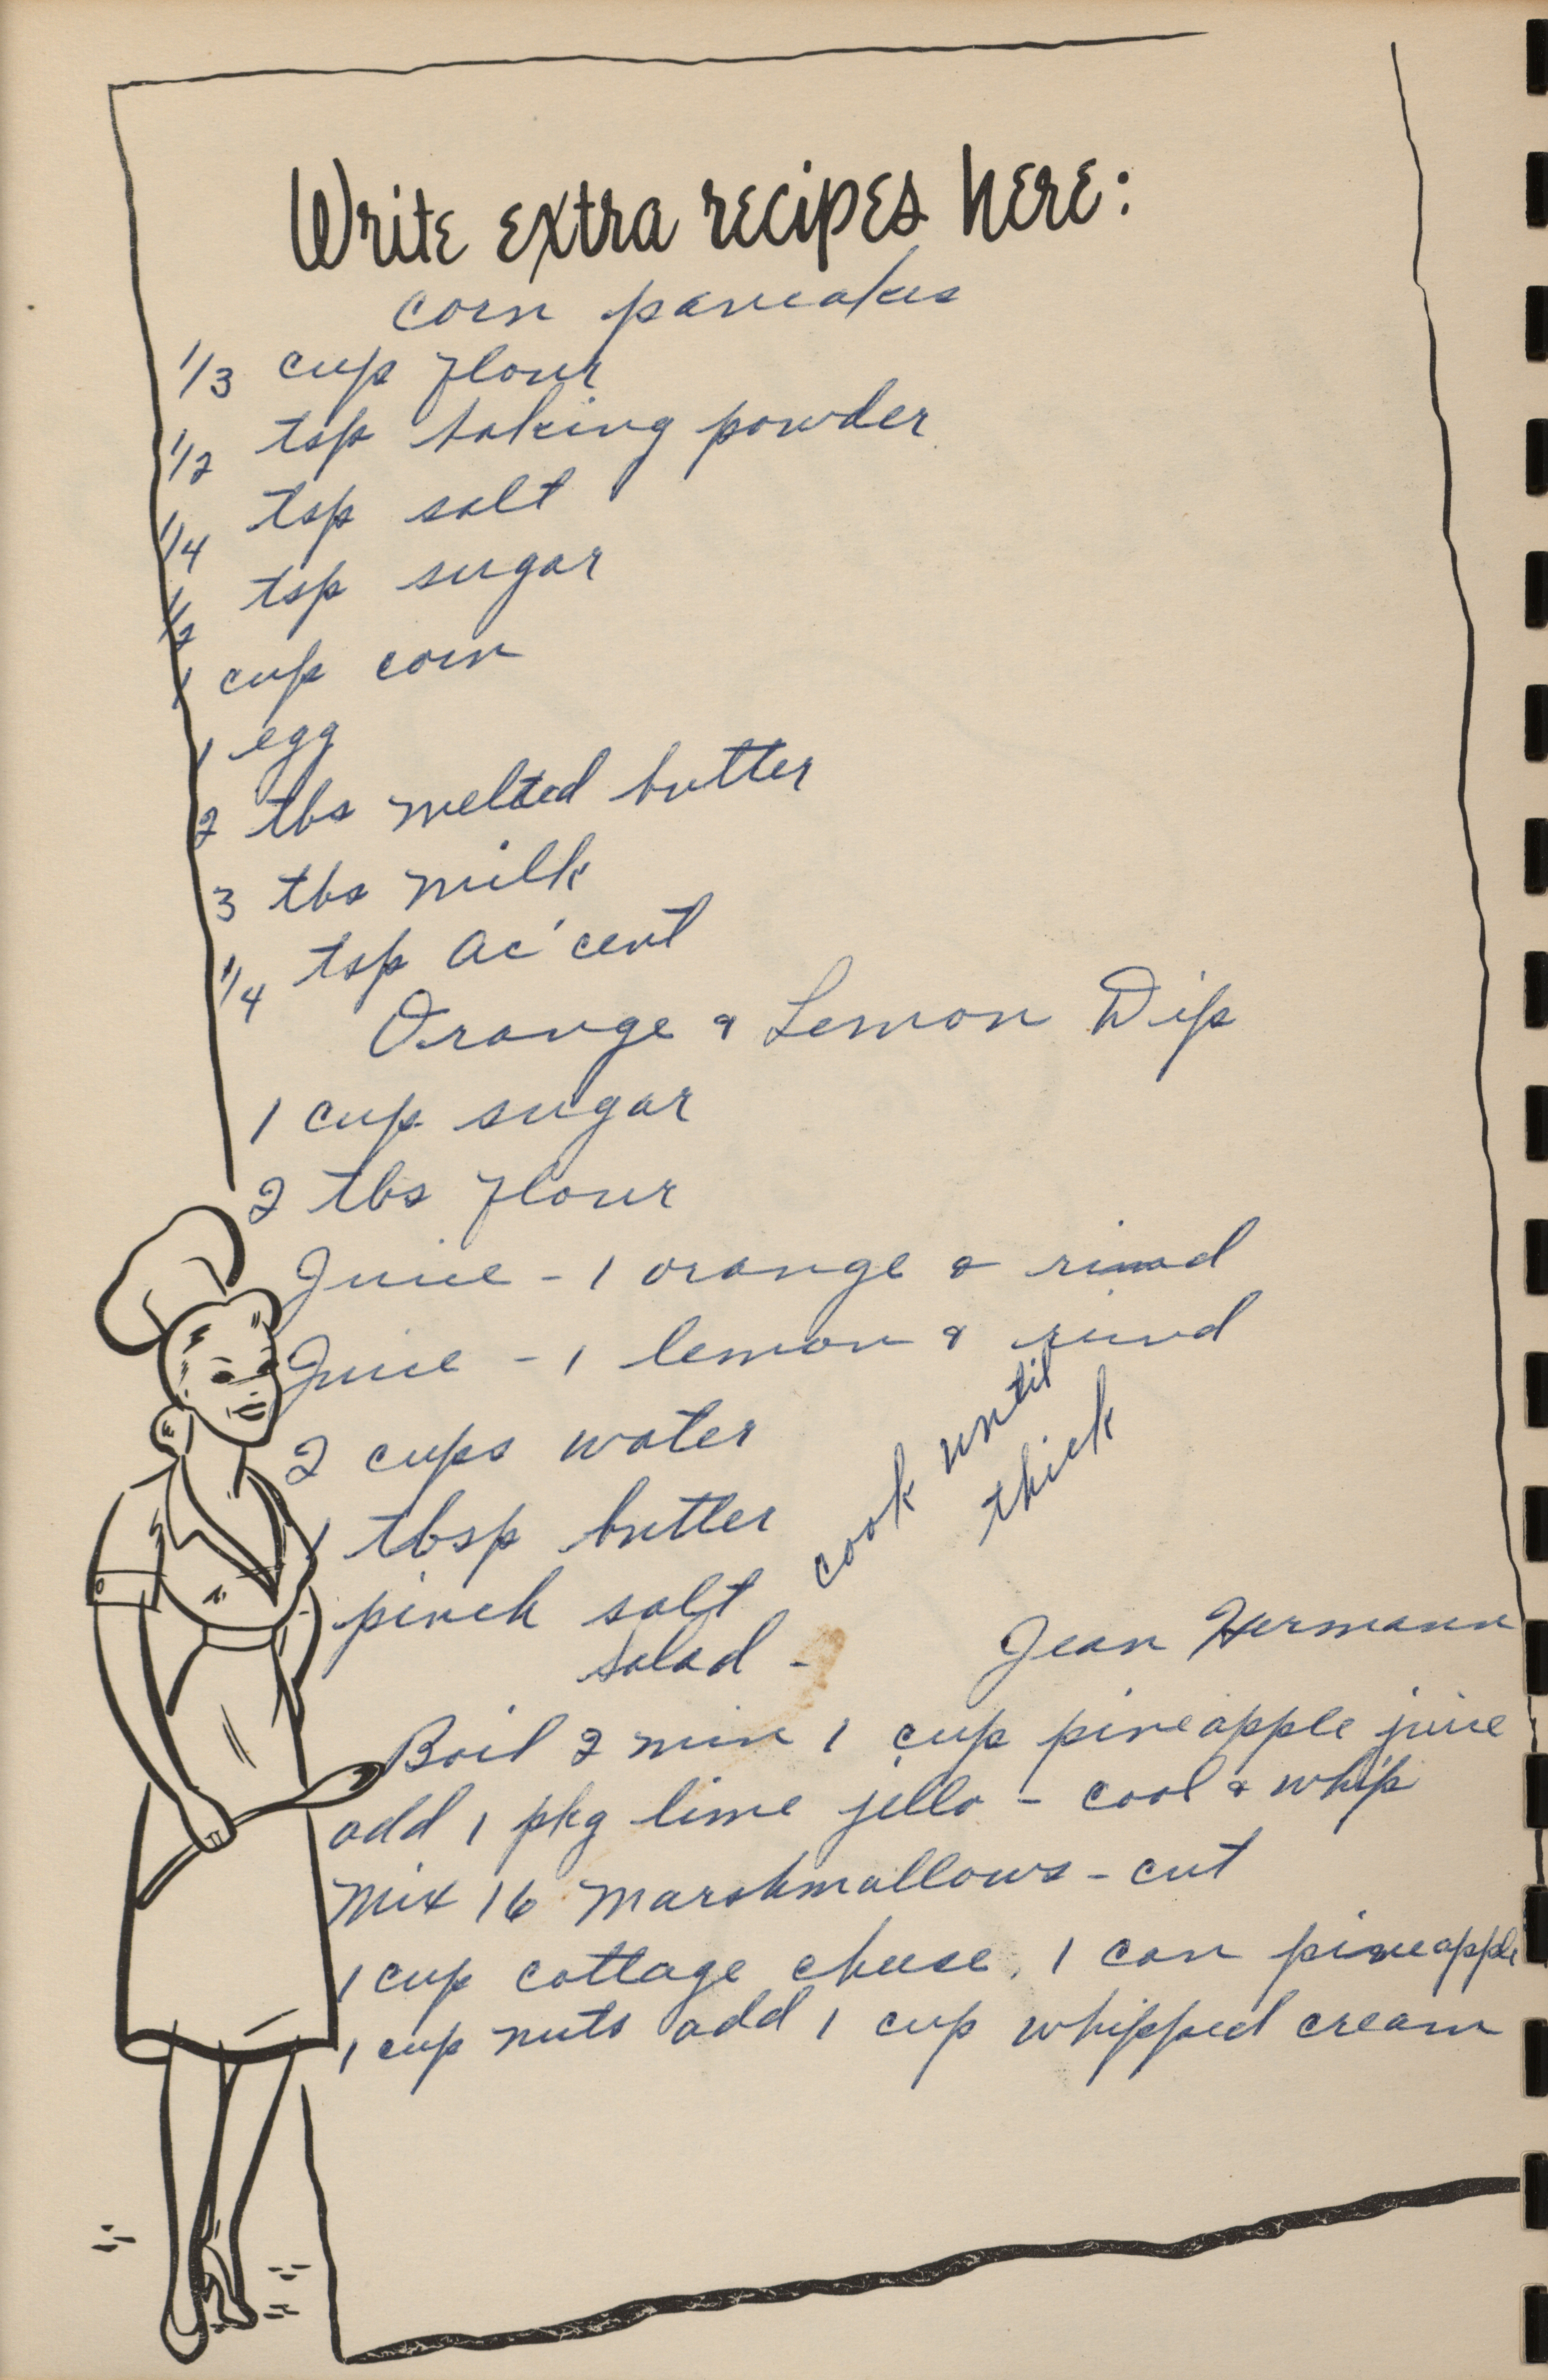 Write extra recipes here:
corn pancakes
1/3 cup flour
1/2 tsp baking powder
1/4 tsp salt
1/2 tsp sugar
1 cup corn
1 egg
2 tbs melted butter
3 tbs milk
1/4 tsp ac'cent
Orange & Lemon Dip
1 cup sugar
2 tbs flour
Juice - 1 orange & rind
Juice - 1 lemon & rind
2 cups water
1 tbsp butter
pinch salt
cook until
thick
salad - Jean Hermann
Boil 2 min 1 cup pineapple juice
add 1 pkg lime jello - cool & whip
Mix 16 Marshmallows - cut
1 cup cottage cheese, 1 can pineapple
1 cup nuts add 1 cup whipped cream